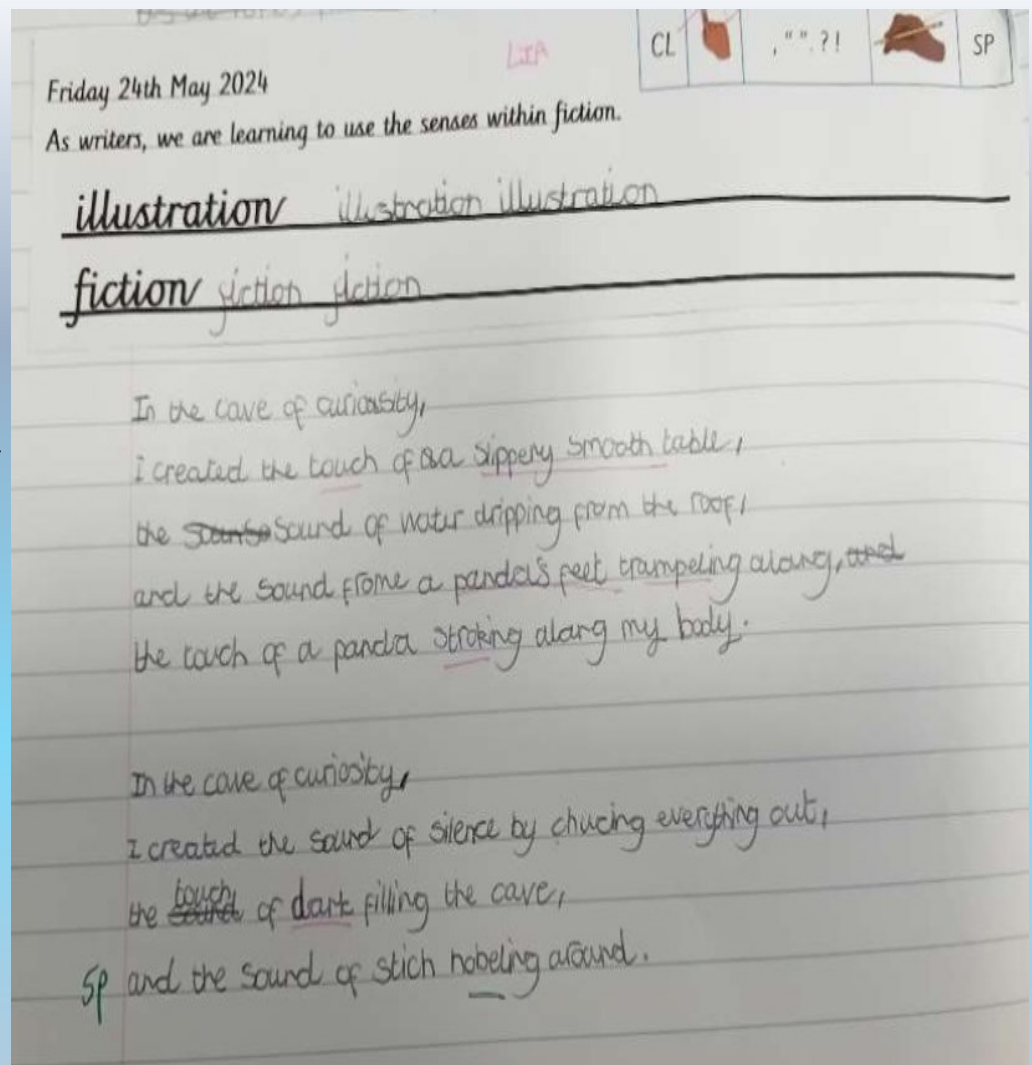 LIA
CL , " " . ? ! SP
Friday 24th May 2024
As writers, we are learning to use the senses within fiction.
illustration illustration illustration
fiction fiction fiction
In the cave of curiousity,
i created the touch of a slippery smooth table,
the sound of water dripping from the roof,
and the sound frome a panda's feet trampeling along, and
the touch of a panda stroking along my body.
In the cave of curiosity,
I created the sound of silence by chucing everything out,
the touch of dark filling the cave,
SP and the sound of stich nobeling around.